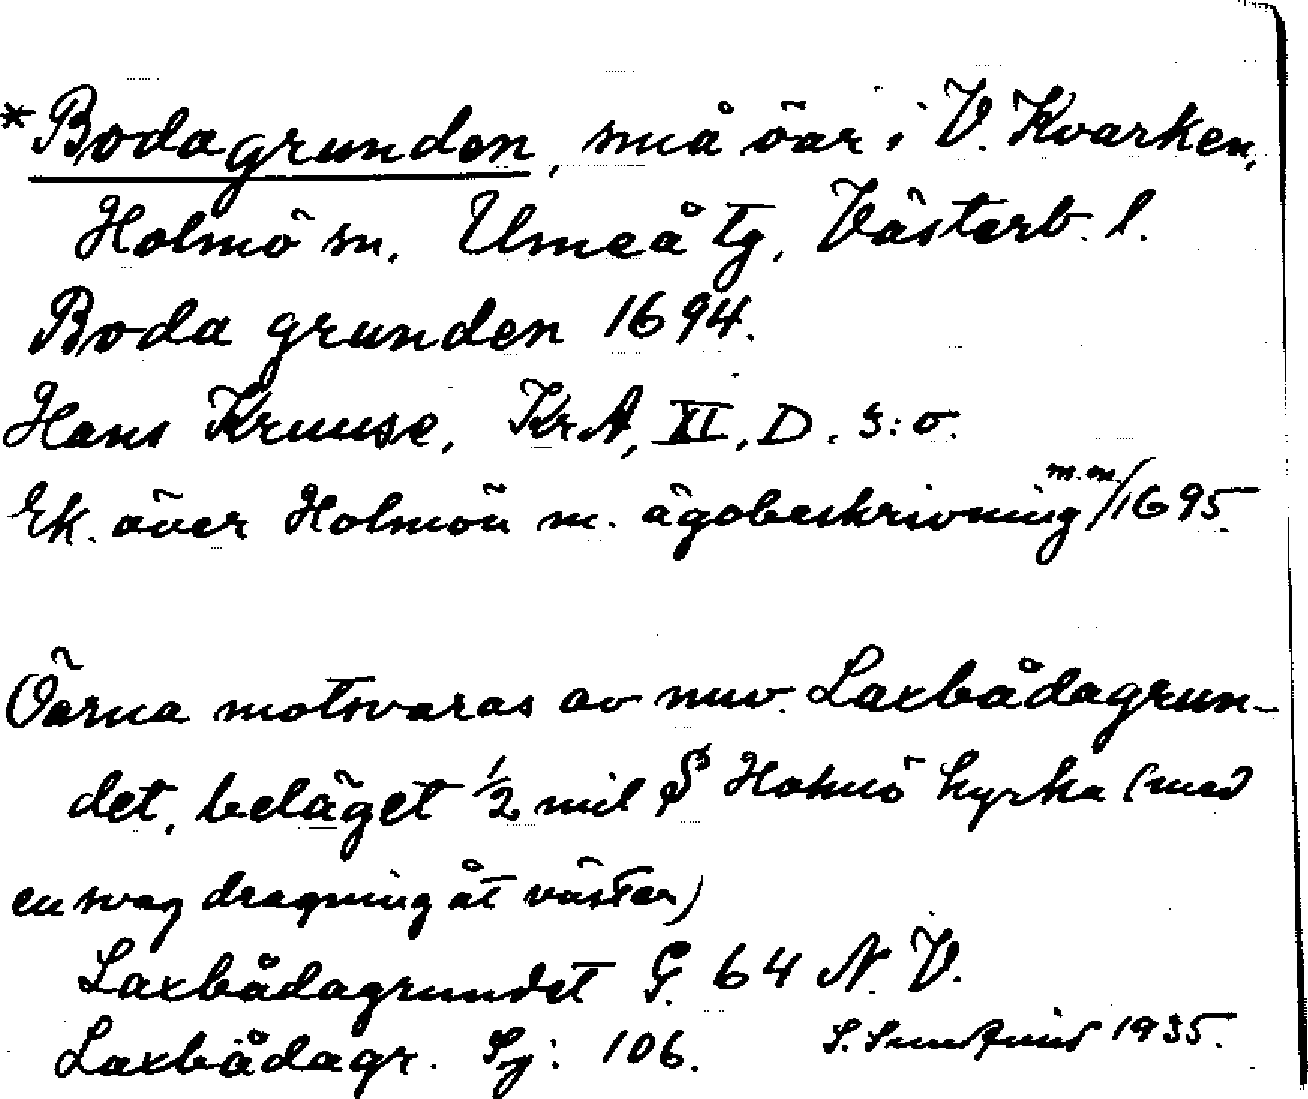 *Bodagrunden, små öar i V. Kvarken,
Holmö sn, Umeå tg, Västerb. l.
Boda grunden 1694.
Hans Kruuse, KrA, XI, D. 3:o.
Ek. över Holmön m. ägobeskrivning m.m/1695.
Öarna motsvaras av nuv. Laxbådagrun-
det, beläget 1/2 mil S Holmö kyrka (med
en svag dragning åt väster)
Laxbådagrundet G. 64 N. V.
Laxbådagr. Sj: 106. S. Sundqvist 1935.